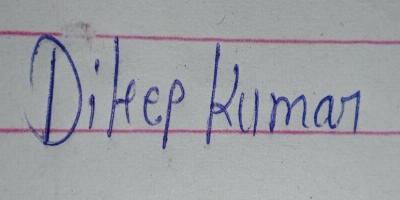 Dileep Kumar